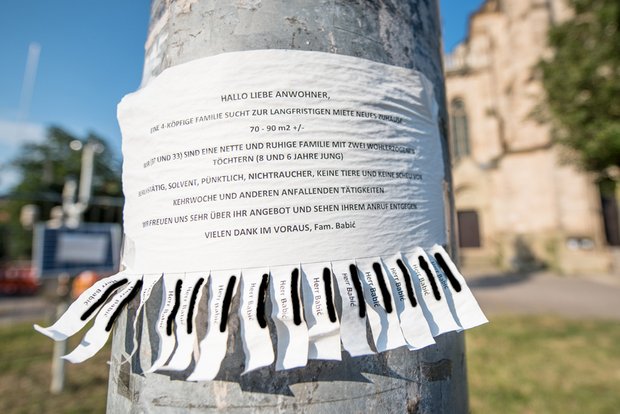 HALLO LIEBE ANWOHNER,
EINE 4-KÖPFIGE FAMILIE SUCHT ZUR LANGFRISTIGEN MIETE NEUES ZUHAUSE
70 - 90 m2 +/-
(37 UND 33) SIND EINE NETTE UND RUHIGE FAMILIE MIT ZWEI WOHLERZOGENEN
TÖCHTERN (8 UND 6 JAHRE JUNG)
BERUFSTÄTIG, SOLVENT, PÜNKTLICH, NICHTRAUCHER, KEINE TIERE UND KEINE SCHEU VOR
KEHRWOCHE UND ANDEREN ANFALLENDEN TÄTIGKEITEN
WIR FREUEN UNS SEHR ÜBER IHR ANGEBOT UND SEHEN IHREM ANRUF ENTGEGEN
VIELEN DANK IM VORAUS, Fam. Babić
Herr Babić
Herr Babić
Herr Babić
Herr Babić
Herr Babić
Herr Babić
Herr Babić
Herr Babić
Herr Babić
Herr Babić
Herr Babić
Herr Babić